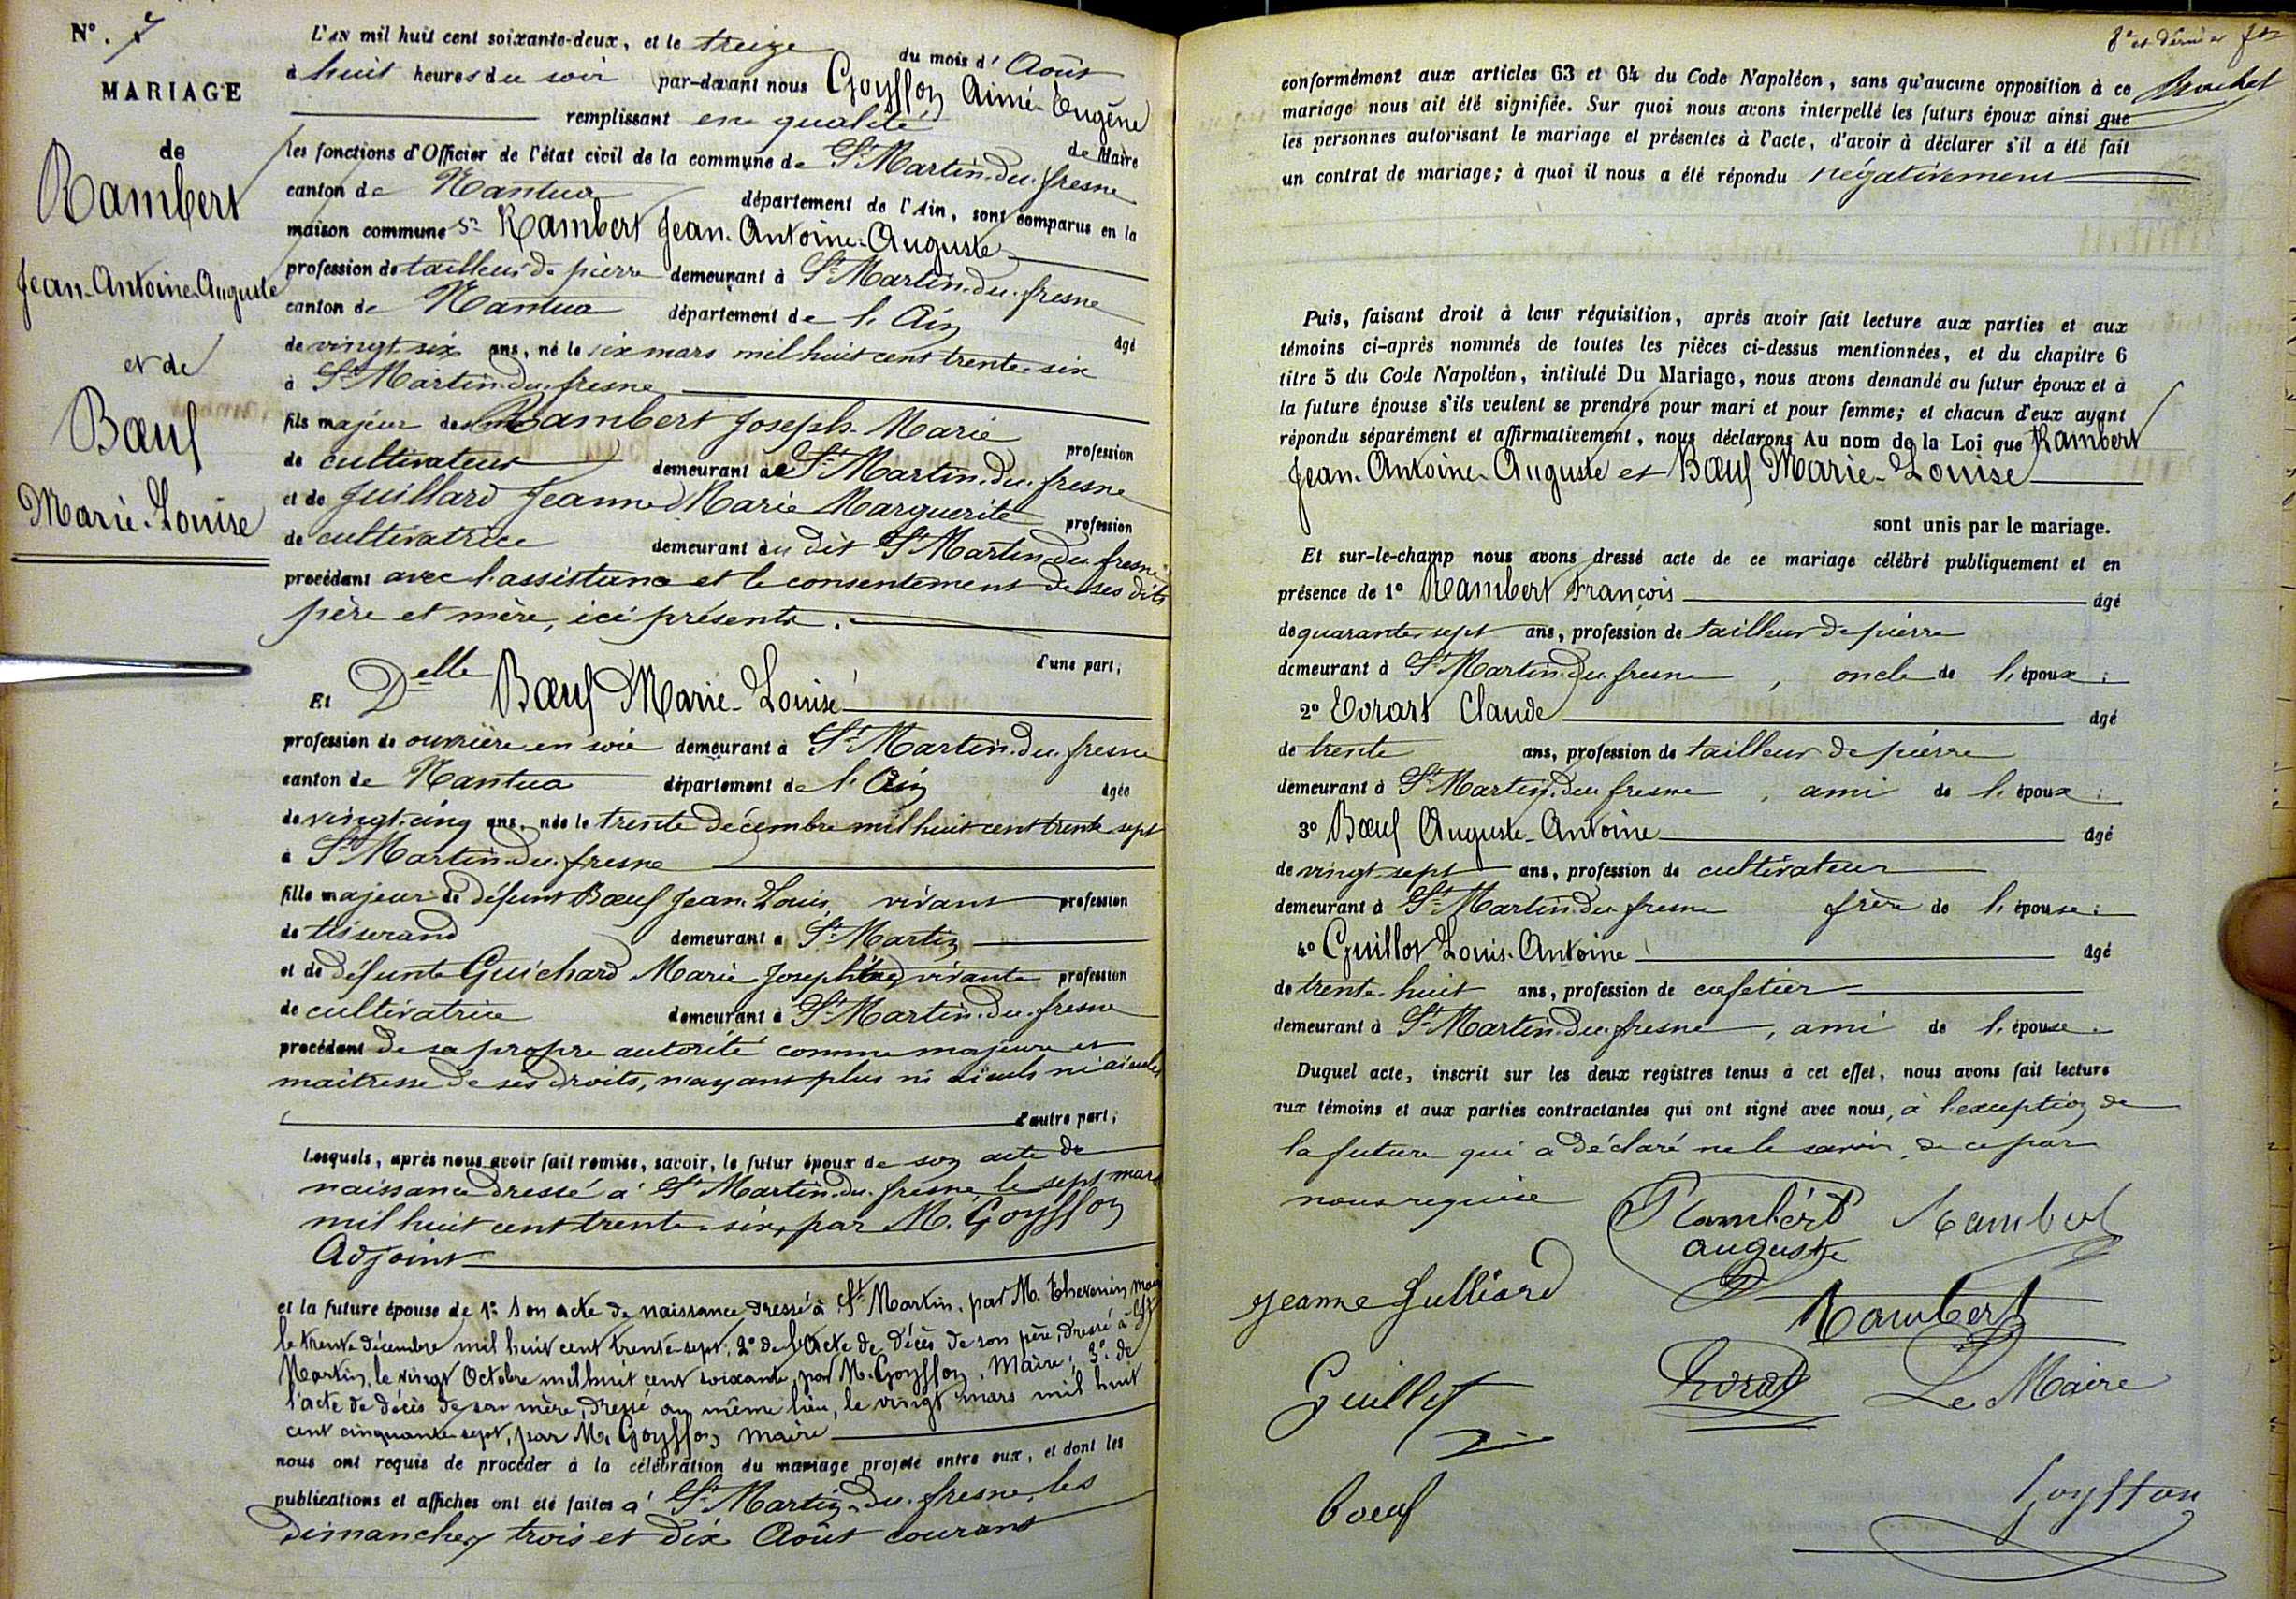 N°. 7
MARIAGE
de
Rambert
Jean-Antoine-Auguste
et de
Bœuf
Marie-Louise
L'AN mil huit cent soixante-deux, et le treize du mois d' Août
à huit heures du soir par-devant nous Goyffon Aimé-Eugène
remplissant en qualité de Maire
les fonctions d'Officier de l'état civil de la commune de St Martin-du-fresne
canton de Nantua département de l'Ain, sont comparus en la
maison commune Sr Rambert Jean-Antoine-Auguste
profession de tailleur de pierre demeurant à St Martin-du-fresne
canton de Nantua département de l'Ain âgé
de vingt-six ans, né le six mars mil huit cent trente-six
à St Martin-du-fresne
fils majeur de Rambert Joseph-Marie profession
de cultivateur demeurant à St Martin-du-fresne
et de Juillard Jeanne Marie Marguerite profession
de cultivatrice demeurant au dit St Martin-du-fresne
procédant avec l'assistance et le consentement de ses dits
père et mère, ici présents.
d'une part;
Et Delle Bœuf Marie-Louise
profession de ouvrière en soie demeurant à St Martin-du-fresne
canton de Nantua département de l'Ain âgée
de vingt-cinq ans, née le trente décembre mil huit cent trente sept
à St Martin-du-fresne
fille majeur de défunt Bœuf Jean-Louis, vivant profession
de tisserand demeurant à St Martin
et de défunte Guichard Marie Josephte vivante profession
de cultivatrice demeurant à St Martin-du-fresne
procédant de sa propre autorité comme majeure et
maîtresse de ses droits, n'ayant plus ni aïeuls ni aïeules
d'autre part;
Lesquels, après nous avoir fait remise, savoir, le futur époux de son acte de
naissance dressé à St Martin-du-fresne, le sept mars
mil huit cent trente-six, par M. Goyffon
Adjoint
et la future épouse de 1° son acte de naissance dressé à St Martin, par M. Thevenin, maire
le trente décembre mil huit cent trente-sept; 2° de l'acte de décès de son père, dressé à St
Martin, le vingt Octobre mil huit cent soixante, par M. Goyffon, Maire; 3° de
l'acte de décès de sa mère, dressé au même lieu, le vingt mars mil huit
cent cinquante-sept, par M. Goyffon, maire
nous ont requis de procéder à la célébration du mariage projeté entre eux, et dont les
publications et affiches ont été faites à St Martin-du-fresne, les
dimanches trois et dix Août courant
8e et dernier
conformément aux articles 63 et 64 du Code Napoléon, sans qu'aucune opposition à ce
mariage nous ait été signifiée. Sur quoi nous avons interpellé les futurs époux ainsi que
les personnes autorisant le mariage et présentes à l'acte, d'avoir à déclarer s'il a été fait
un contrat de mariage; à quoi il nous a été répondu négativement
Puis, faisant droit à leur réquisition, après avoir fait lecture aux parties et aux
témoins ci-après nommés de toutes les pièces ci-dessus mentionnées, et du chapitre 6
titre 5 du Code Napoléon, intitulé Du Mariage, nous avons demandé au futur époux et à
la future épouse s'ils veulent se prendre pour mari et pour femme; et chacun d'eux ayant
répondu séparément et affirmativement, nous déclarons Au nom de la Loi que Rambert
Jean-Antoine-Auguste et Bœuf Marie-Louise
sont unis par le mariage.
Et sur-le-champ nous avons dressé acte de ce mariage célébré publiquement et en
présence de 1° Rambert François âgé
de quarante-sept ans, profession de tailleur de pierre
demeurant à St Martin-du-fresne, oncle de l'époux;
2° Evrart Claude âgé
de trente ans, profession de tailleur de pierre
demeurant à St Martin-du-fresne, ami de l'époux;
3° Bœuf Auguste-Antoine âgé
de vingt-sept ans, profession de cultivateur
demeurant à St Martin-du-fresne frère de l'épouse;
4° Guillot Louis-Antoine âgé
de trente-huit ans, profession de cafetier
demeurant à St Martin-du-fresne, ami de l'épouse.
Duquel acte, inscrit sur les deux registres tenus à cet effet, nous avons fait lecture
aux témoins et aux parties contractantes qui ont signé avec nous, à l'exception de
la future qui a déclaré ne le savoir, de ce par
nous requise
Rambert Rambert
auguste
Jeanne Julliard
Rambert
Guillot Evrat Le Maire
boeuf
Goyffon